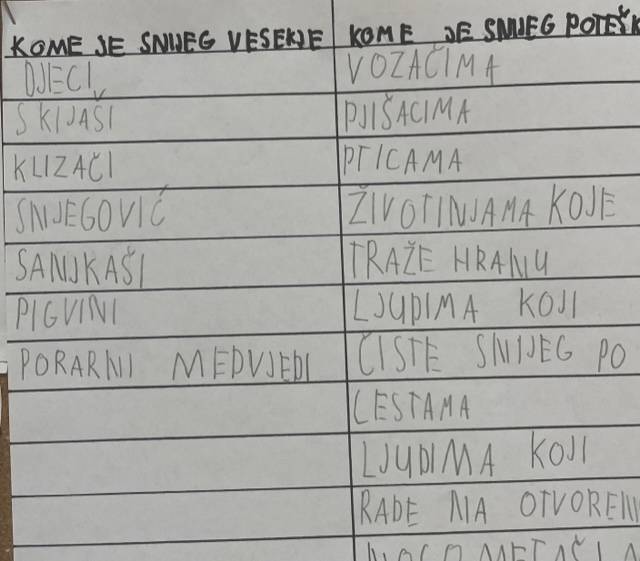 KOME JE SNIJEG VESELJE
DJECI
SKIJAŠI
KLIZAČI
SNJEGOVIĆ
SANJKAŠI
PIGVINI
PORARNI MEDVJEDI
KOME JE SNIJEG POTEŠK
VOZAČIMA
PJIŠACIMA
PTICAMA
ŽIVOTINJAMA KOJE
TRAŽE HRANU
LJUDIMA KOJI
ČISTE SNIJEG PO
CESTAMA
LJUDIMA KOJI
RADE NA OTVOREN